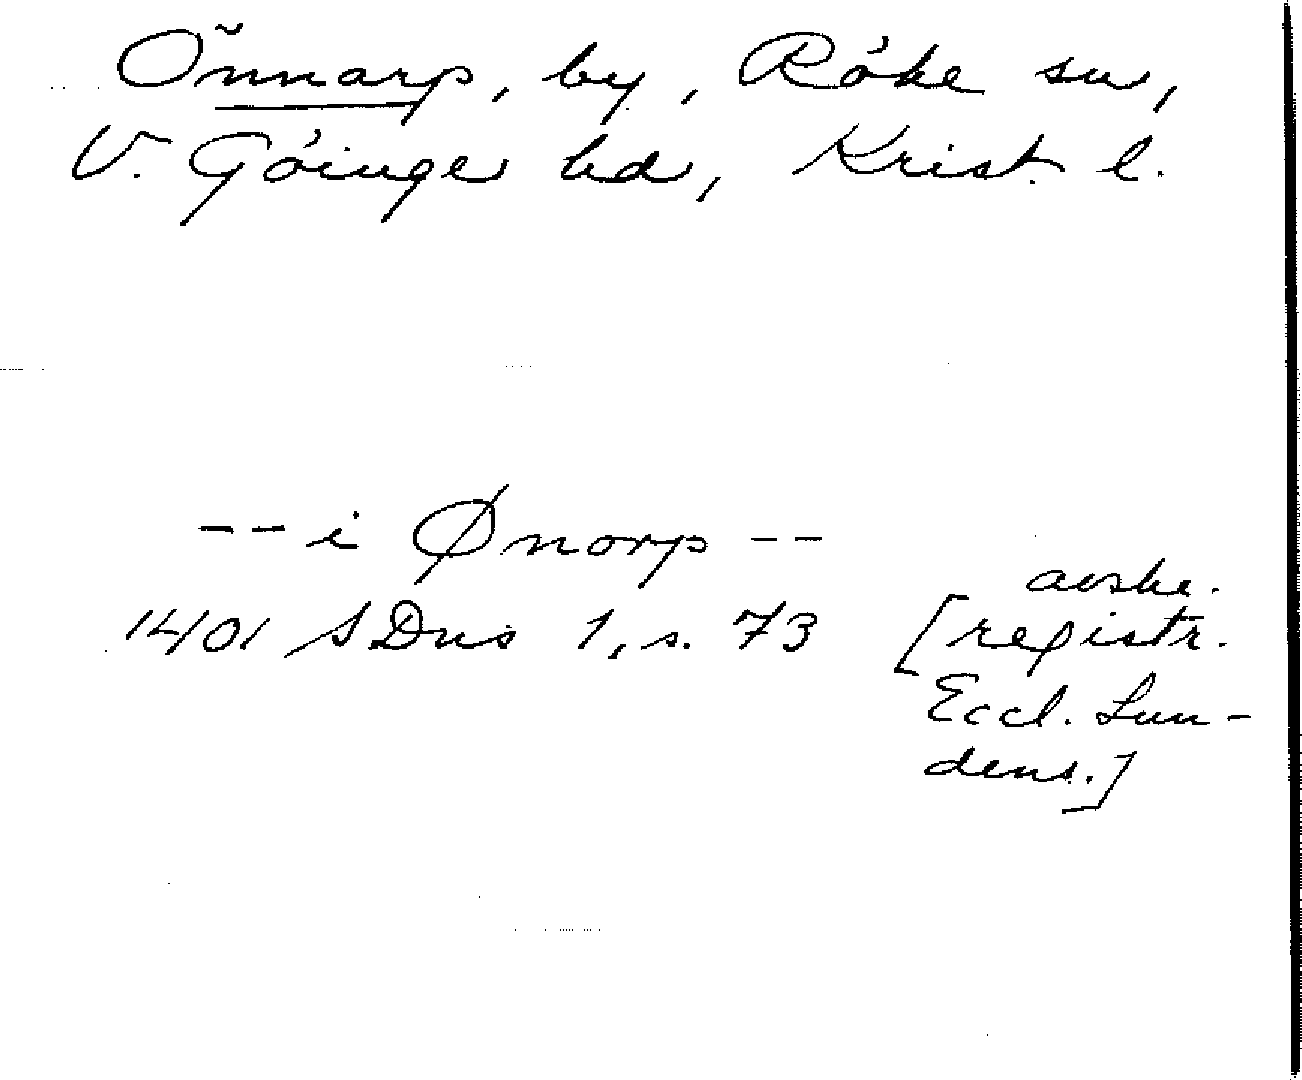 Önnarp, by, Röke sn,
V. Göinge hd, Krist. l.
-- i Ønorp --
1401 SDns 1, s. 73 [avskr.
registr.
Eccl. Lun-
dens.]